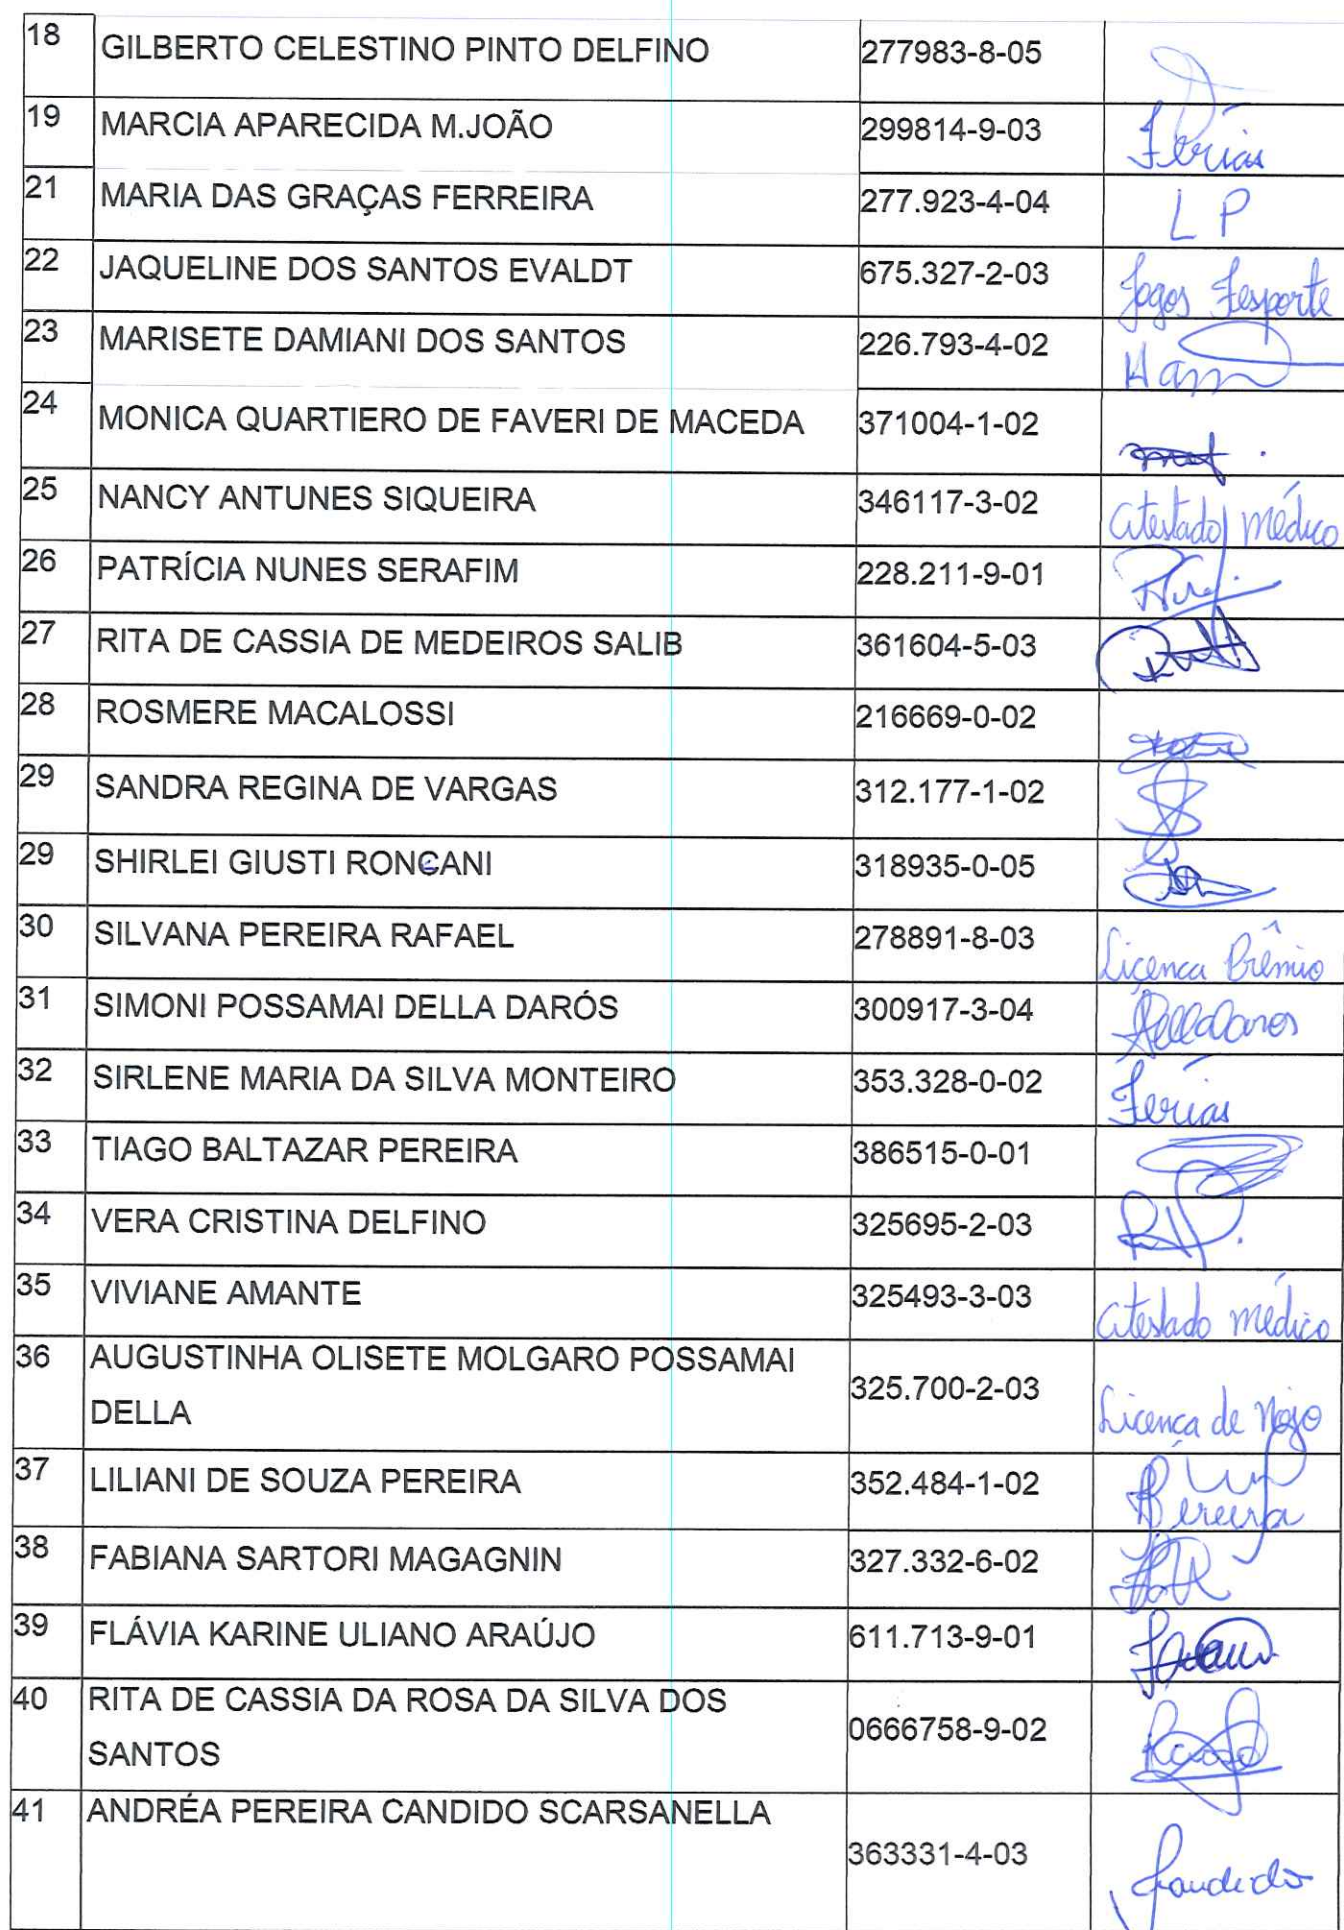 18 GILBERTO CELESTINO PINTO DELFINO 277983-8-05
19 MARCIA APARECIDA M.JOÃO 299814-9-03 Férias
21 MARIA DAS GRAÇAS FERREIRA 277.923-4-04 L P
22 JAQUELINE DOS SANTOS EVALDT 675.327-2-03 Jogos Fesporte
23 MARISETE DAMIANI DOS SANTOS 226.793-4-02
24 MONICA QUARTIERO DE FAVERI DE MACEDA 371004-1-02
25 NANCY ANTUNES SIQUEIRA 346117-3-02 atestado médico
26 PATRÍCIA NUNES SERAFIM 228.211-9-01
27 RITA DE CASSIA DE MEDEIROS SALIB 361604-5-03
28 ROSMERE MACALOSSI 216669-0-02
29 SANDRA REGINA DE VARGAS 312.177-1-02
29 SHIRLEI GIUSTI RONCANI 318935-0-05
30 SILVANA PEREIRA RAFAEL 278891-8-03 Licença Prêmio
31 SIMONI POSSAMAI DELLA DARÓS 300917-3-04
32 SIRLENE MARIA DA SILVA MONTEIRO 353.328-0-02 Férias
33 TIAGO BALTAZAR PEREIRA 386515-0-01
34 VERA CRISTINA DELFINO 325695-2-03
35 VIVIANE AMANTE 325493-3-03 atestado médico
36 AUGUSTINHA OLISETE MOLGARO POSSAMAI
DELLA 325.700-2-03 Licença de Nojo
37 LILIANI DE SOUZA PEREIRA 352.484-1-02 Pereira
38 FABIANA SARTORI MAGAGNIN 327.332-6-02
39 FLÁVIA KARINE ULIANO ARAÚJO 611.713-9-01
40 RITA DE CASSIA DA ROSA DA SILVA DOS
SANTOS 0666758-9-02
41 ANDRÉA PEREIRA CANDIDO SCARSANELLA
363331-4-03